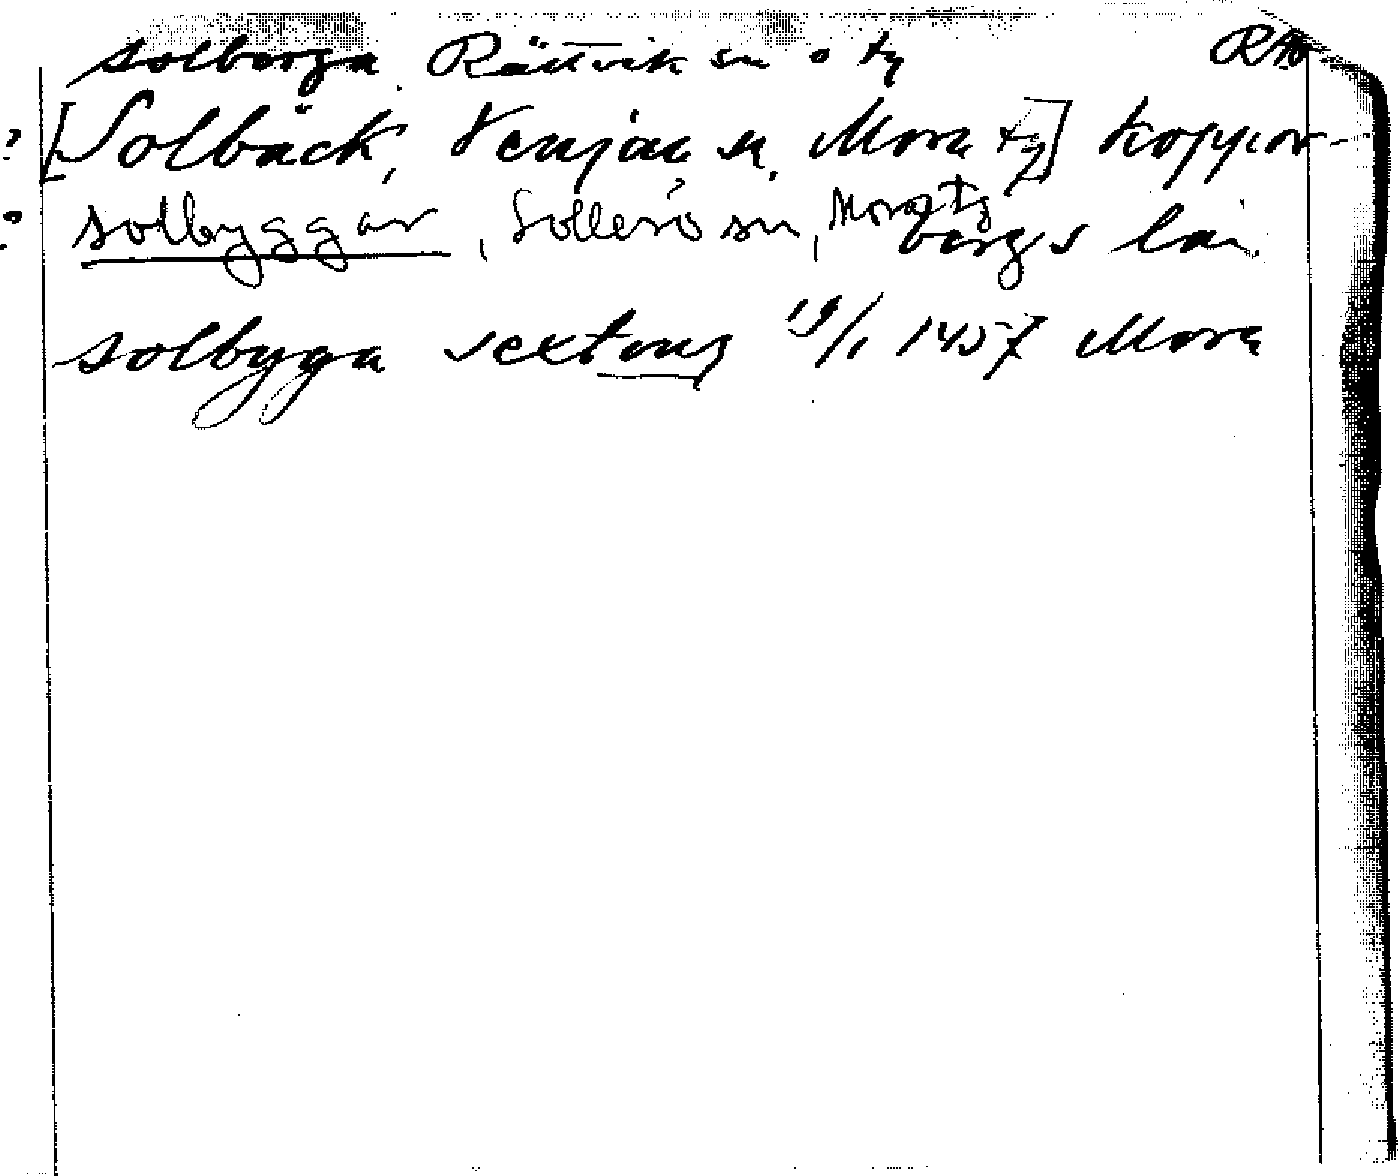 solberga. Rättvik sn o tg RAp
? [Solbäck, Venjan sn, Mora tg] Koppar-
? solbyggar, Sollerö sn, Mora tg bergs län.
solbyga sextung 19/1 1457 Mora